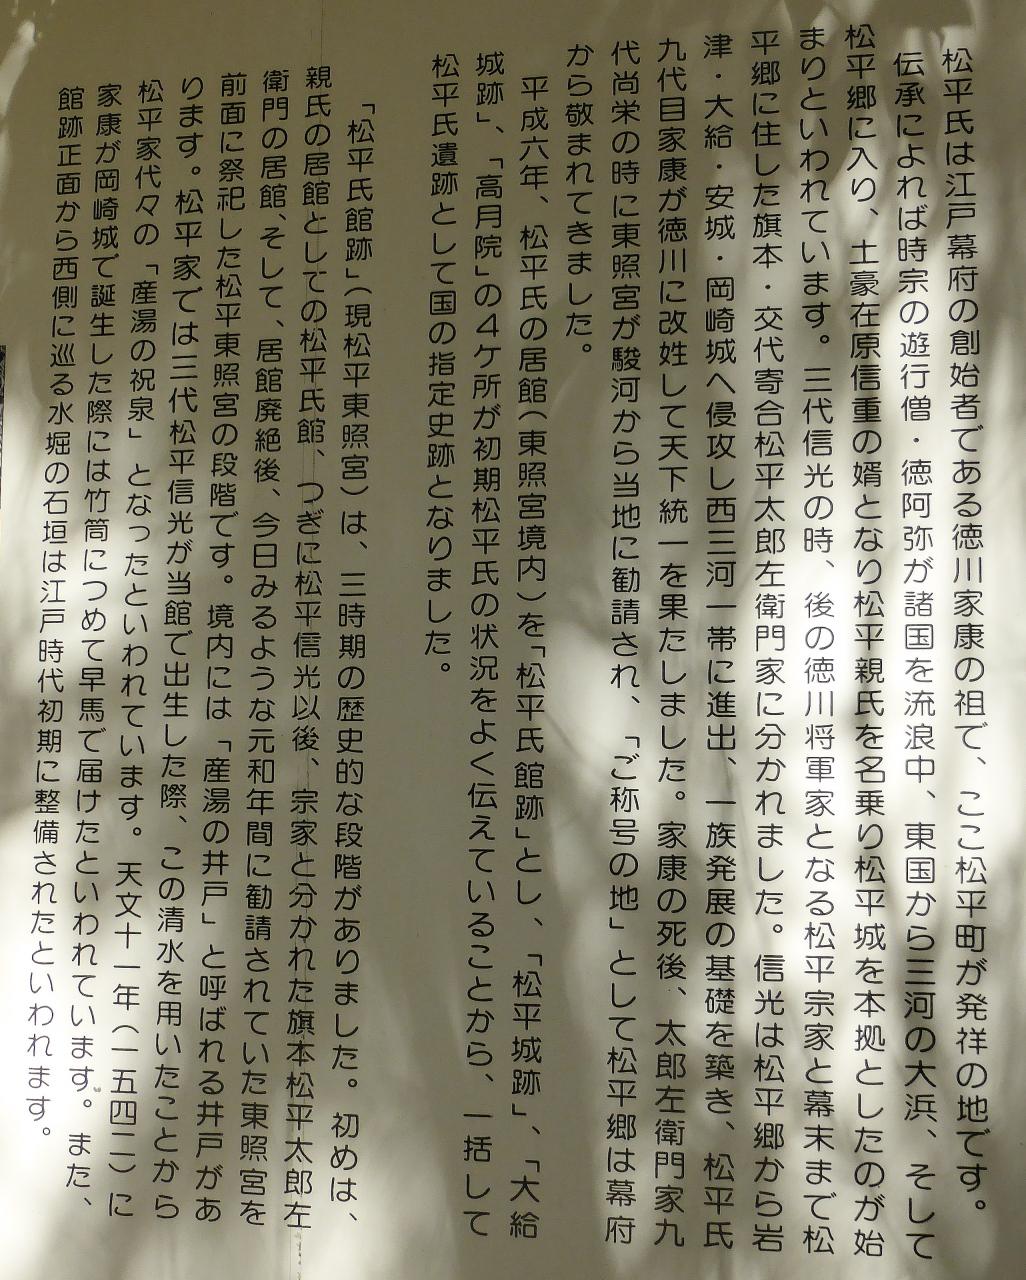 松平氏は江戸幕府の創始者である徳川家康の祖で、ここ松平町が発祥の地です。
伝承によれば時宗の遊行僧・徳阿弥が諸国を流浪中、東国から三河の大浜、そして
松平郷に入り、土豪在原信重の婿となり松平親氏を名乗り松平城を本拠としたのが始
まりといわれています。三代信光の時、後の徳川将軍家となる松平宗家と幕末まで松
平郷に住した旗本・交代寄合松平太郎左衛門家に分かれました。信光は松平郷から岩
津・大給・安城・岡崎城へ侵攻し西三河一帯に進出、一族発展の基礎を築き、松平氏
九代目家康が徳川に改姓して天下統一を果たしました。家康の死後、太郎左衛門家九
代尚栄の時に東照宮が駿河から当地に勧請され、「ご称号の地」として松平郷は幕府
から敬まれてきました。
平成六年、松平氏の居館(東照宮境内)を「松平氏館跡」とし、「松平城跡」、「大給
城跡」、「高月院」の4ケ所が初期松平氏の状況をよく伝えていることから、一括して
松平氏遺跡として国の指定史跡となりました。
「松平氏館跡」(現松平東照宮)は、三時期の歴史的な段階がありました。初めは、
親氏の居館としての松平氏館、つぎに松平信光以後、宗家と分かれた旗本松平太郎左
衛門の居館、そして、居館廃絶後、今日みるような元和年間に勧請されていた東照宮を
前面に祭祀した松平東照宮の段階です。境内には「産湯の井戸」と呼ばれる井戸があ
ります。松平家では三代松平信光が当館で出生した際、この清水を用いたことから
松平家代々の「産湯の祝泉」となったといわれています。天文十一年(一五四二)に
家康が岡崎城で誕生した際には竹筒につめて早馬で届けたといわれています。また、
館跡正面から西側に巡る水堀の石垣は江戸時代初期に整備されたといわれます。